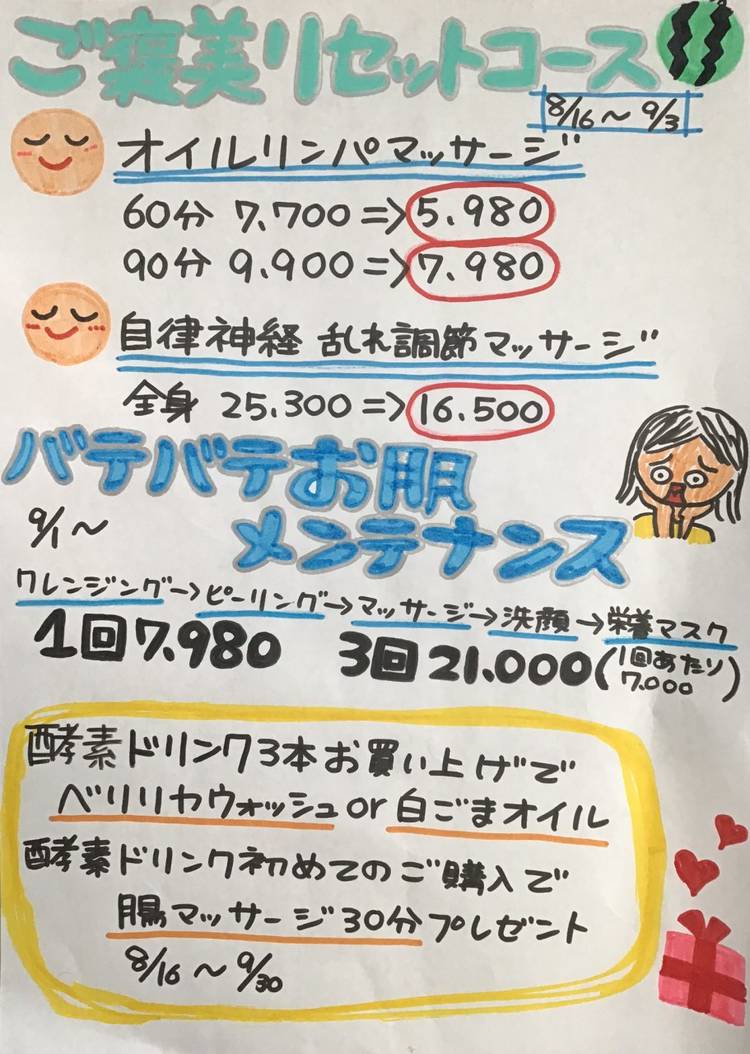 ご褒美リセットコース
8/16〜9/3
オイルリンパマッサージ
60分 7.700=>5.980
90分 9.900=>7.980
自律神経 乱れ調節マッサージ
全身 25.300=>16.500
バテバテお肌
9/1〜
メンテナンス
クレンジング→ピーリング→マッサージ→洗顔→栄養マスク
1回7.980 3回21.000(1回あたり
7.000)
酵素ドリンク3本お買い上げで
ベリリカウォッシュor白ごまオイル
酵素ドリンク初めてのご購入で
腸マッサージ30分プレゼント
8/16〜9/30